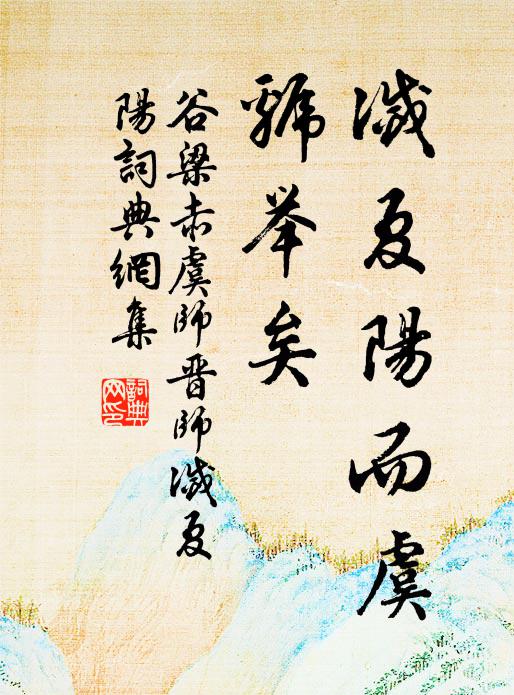 滅夏陽而虞
虢举矣
谷梁赤虞師晋師滅夏
陽詞典網集
詞典
网印